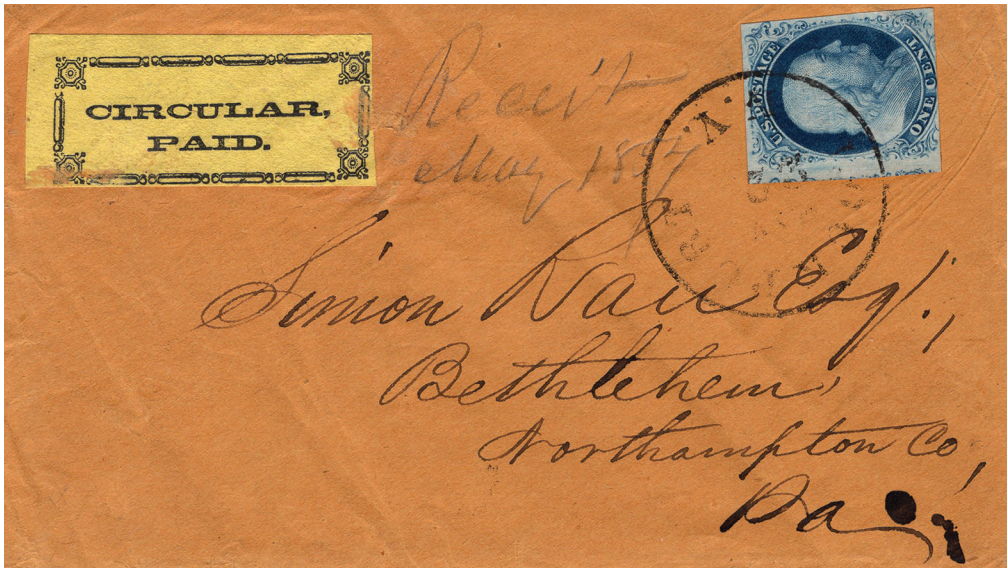 CIRCULAR,
PAID.
Receit
May 1857
U.S. POSTAGE
ONE CENT
Simon Rau Esq.,
Bethlehem,
Northampton Co,
Pa